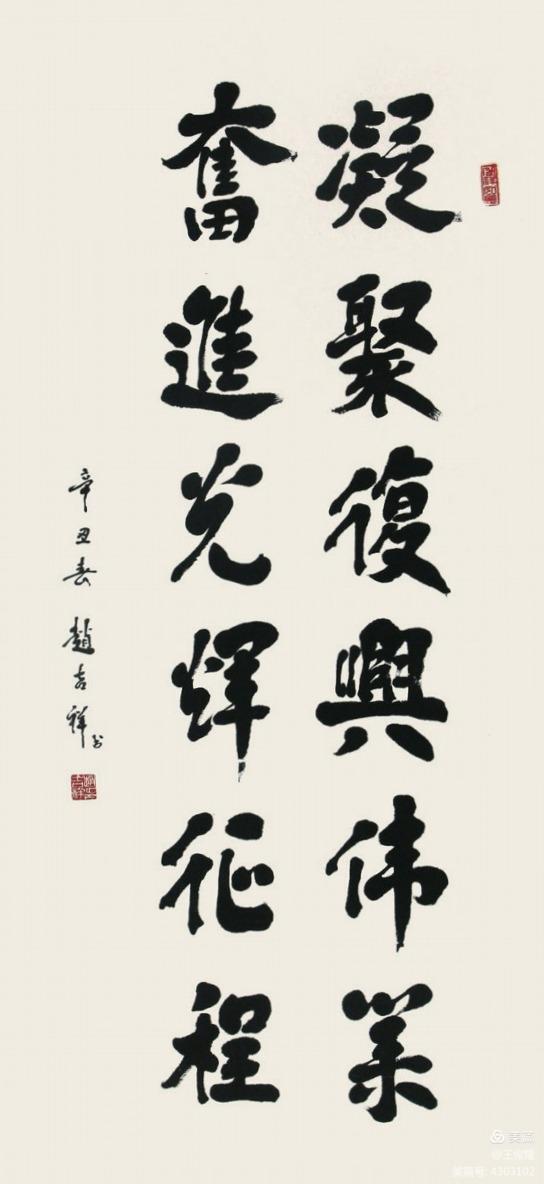 凝聚復興伟業
奮進光輝征程
辛丑春 趙吉祥书
美篇
@王俊耀
美篇号: 4303102